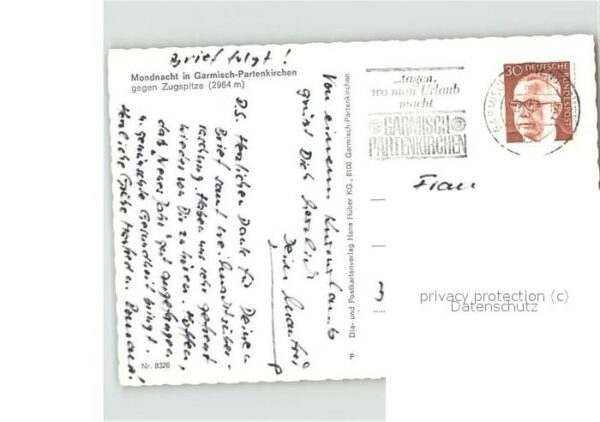 Brief folgt!
Mondnacht in Garmisch-Partenkirchen
gegen Zugspitze (2964 m)
Von einem Kurzurlaub
grüßt Dich herzlich
Dein
P.S. Herzlichen Dank für Deinen
Brief samt Weihnachtsüber-
raschung. Haben uns sehr gefreut
wieder von Dir zu hören. Hoffen,
daß Neues Jahr gut angefangen
u. gewünschte Gesundheit bringt.
Herzliche Grüße Manfred u.
Nr. 8326
Dia- und Postkartenverlag Hans Huber KG., 8100 Garmisch-Partenkirchen
P
...tagen,
wo man Urlaub
macht
GARMISCH
PARTENKIRCHEN
30 DEUTSCHE
BUNDESPOST
Frau
privacy protection (c)
Datenschutz